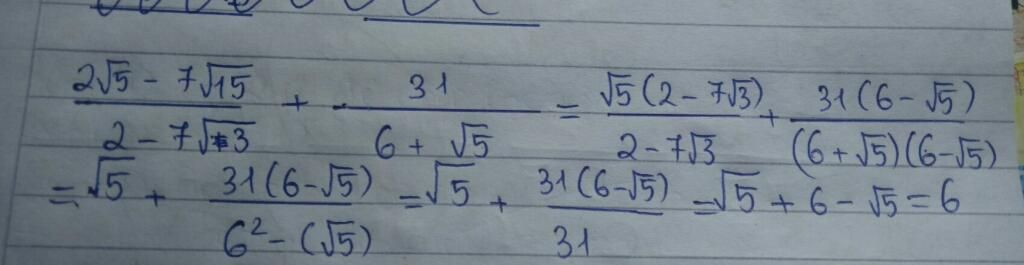 (2√5 - 7√15)/(2 - 7√3) + 31/(6 + √5) = √5(2 - 7√3)/(2 - 7√3) + 31(6 - √5)/((6 + √5)(6 - √5))
= √5 + 31(6 - √5)/(6² - (√5)) = √5 + 31(6 - √5)/31 = √5 + 6 - √5 = 6